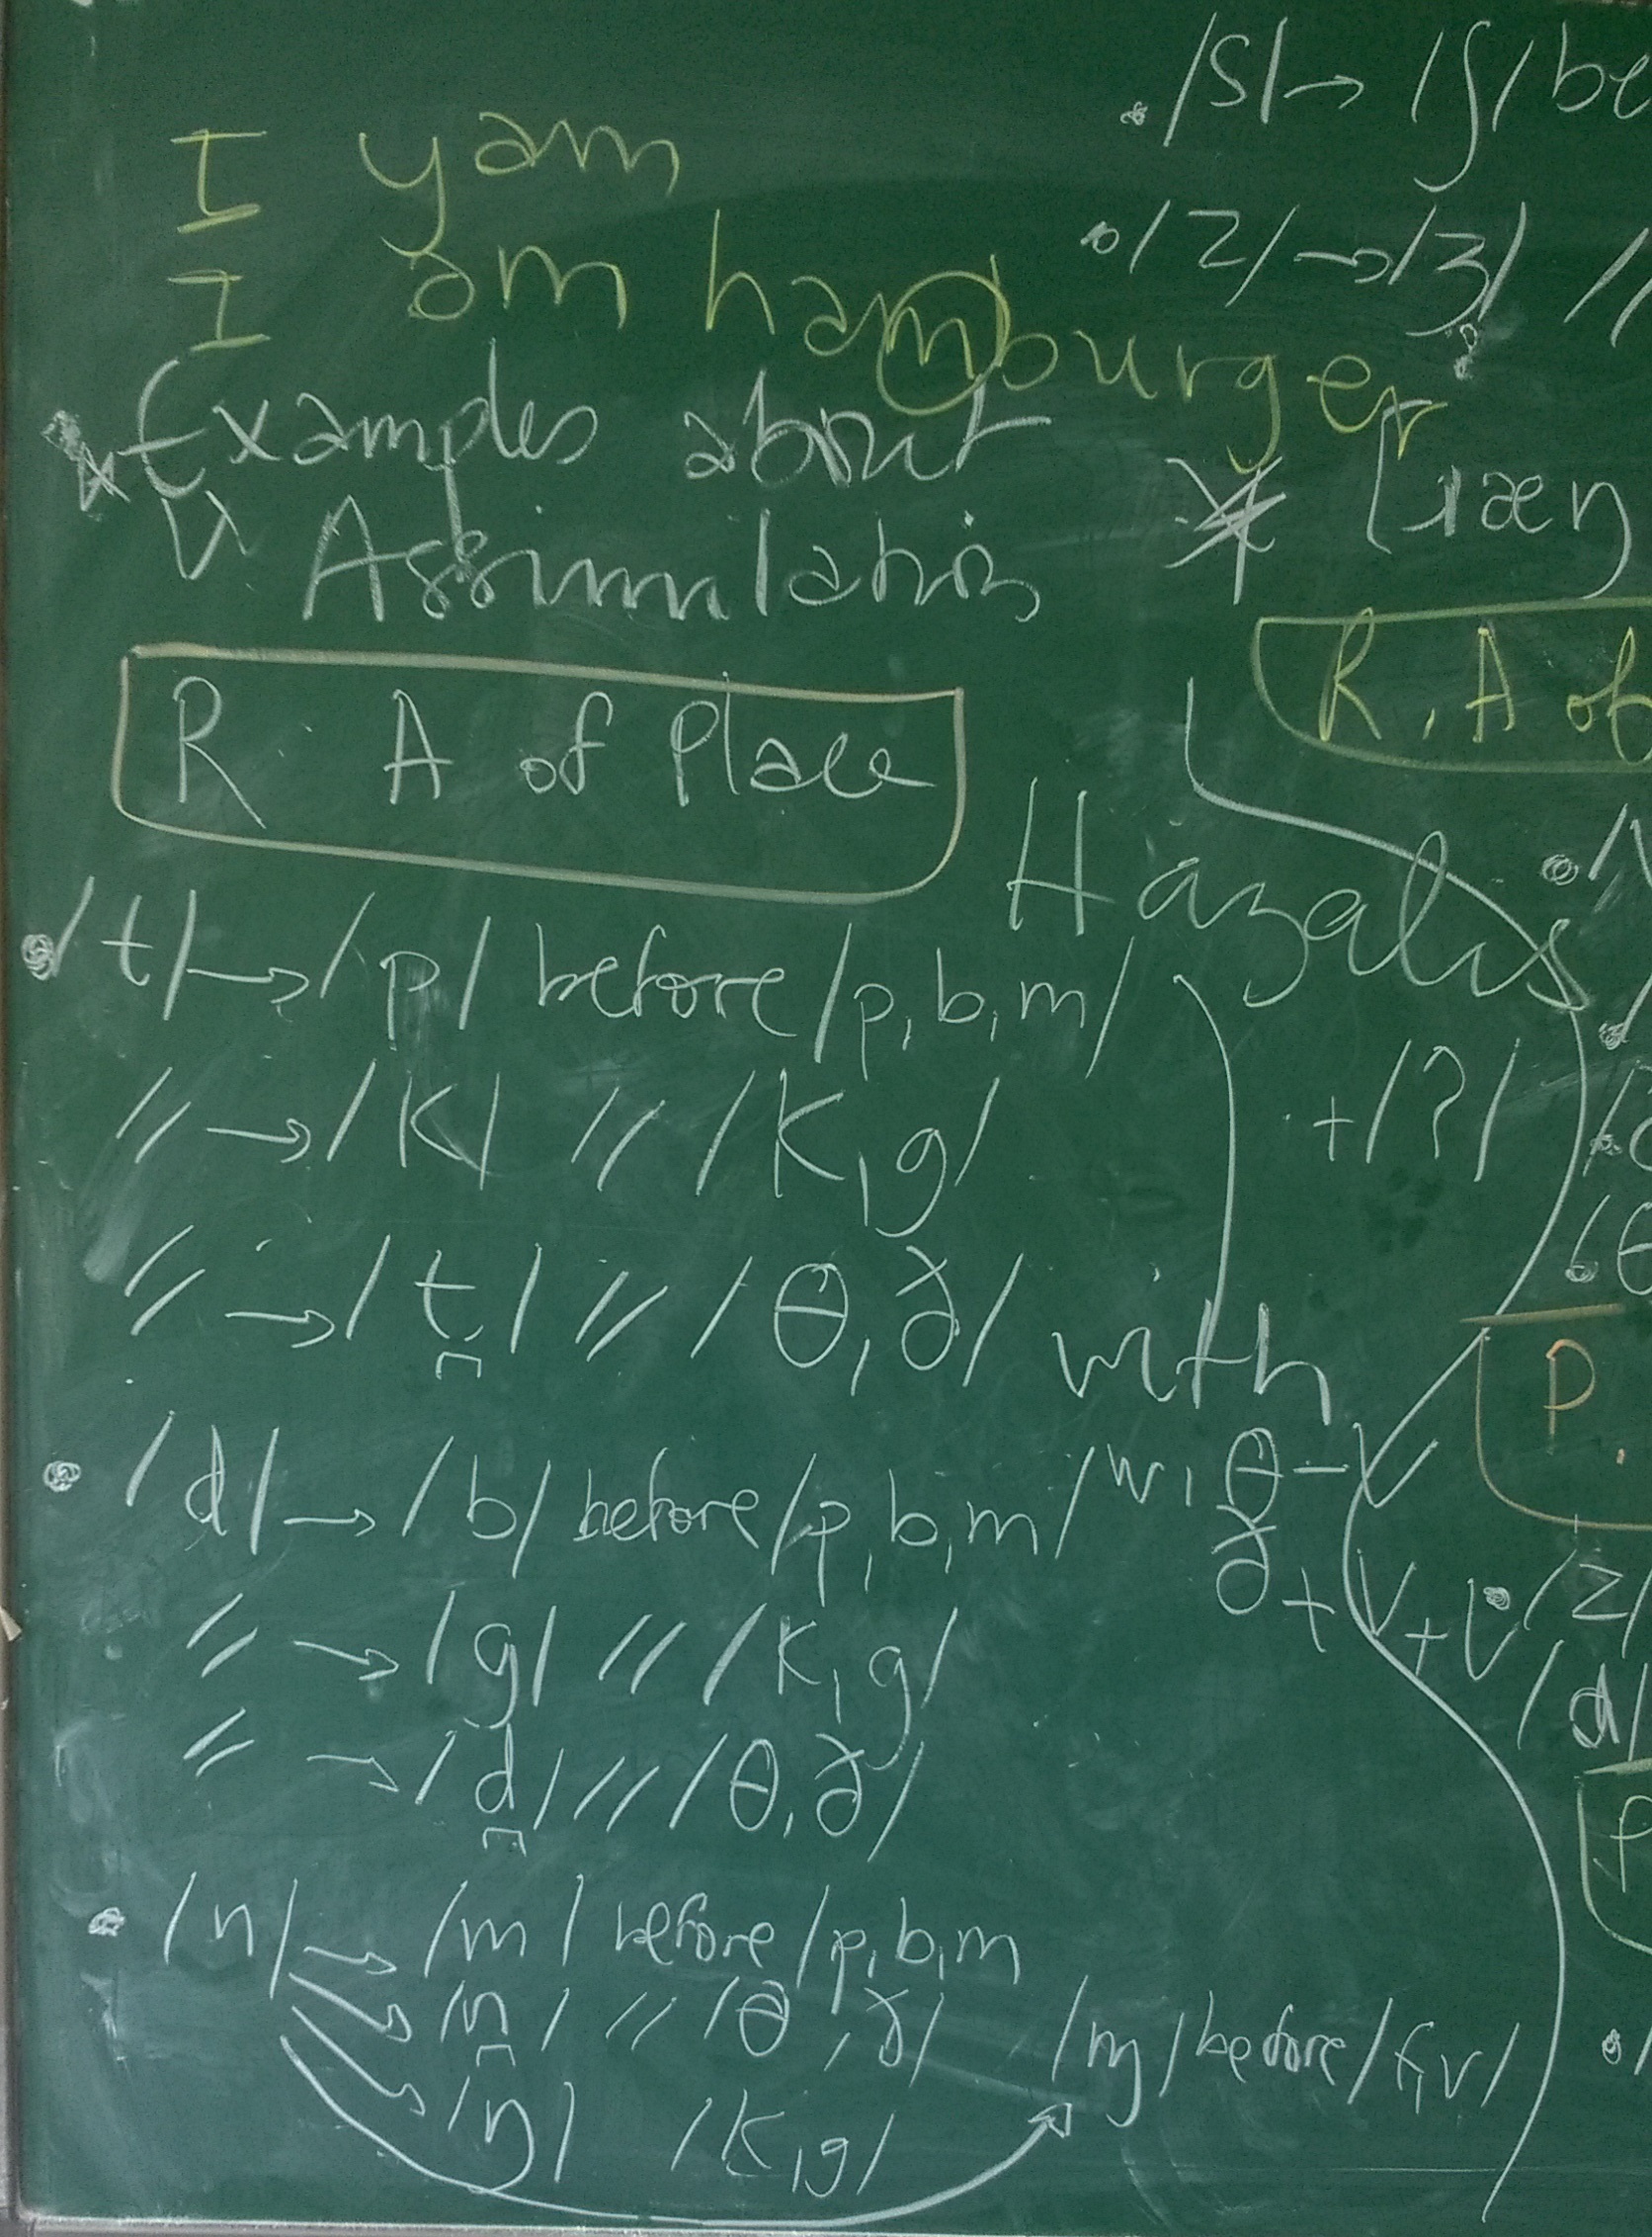 I yam
I am hamburger
Examples about
Assimilation
R. A of Place
Hazalis
• /t/ → /p/ before /p, b, m/
〃 → /k/ 〃 /k, g/
+/?/
〃 → /t̪/ 〃 /θ, ð/
with
• /d/ → /b/ before /p, b, m/
w, θ -
ð + V + V
〃 → /g/ 〃 /k, g/
〃 → /d̪/ 〃 /θ, ð/
• /n/ → /m/ before /p, b, m
/n̪/ 〃 /θ, ð/
/ŋ/ /k, g/
/ɱ/ before /f, v/
• /s/ → /ʃ/ be
• /z/ → /ʒ/ 〃
* [ɹæŋ
R. A of
P.
• /z/
/d/